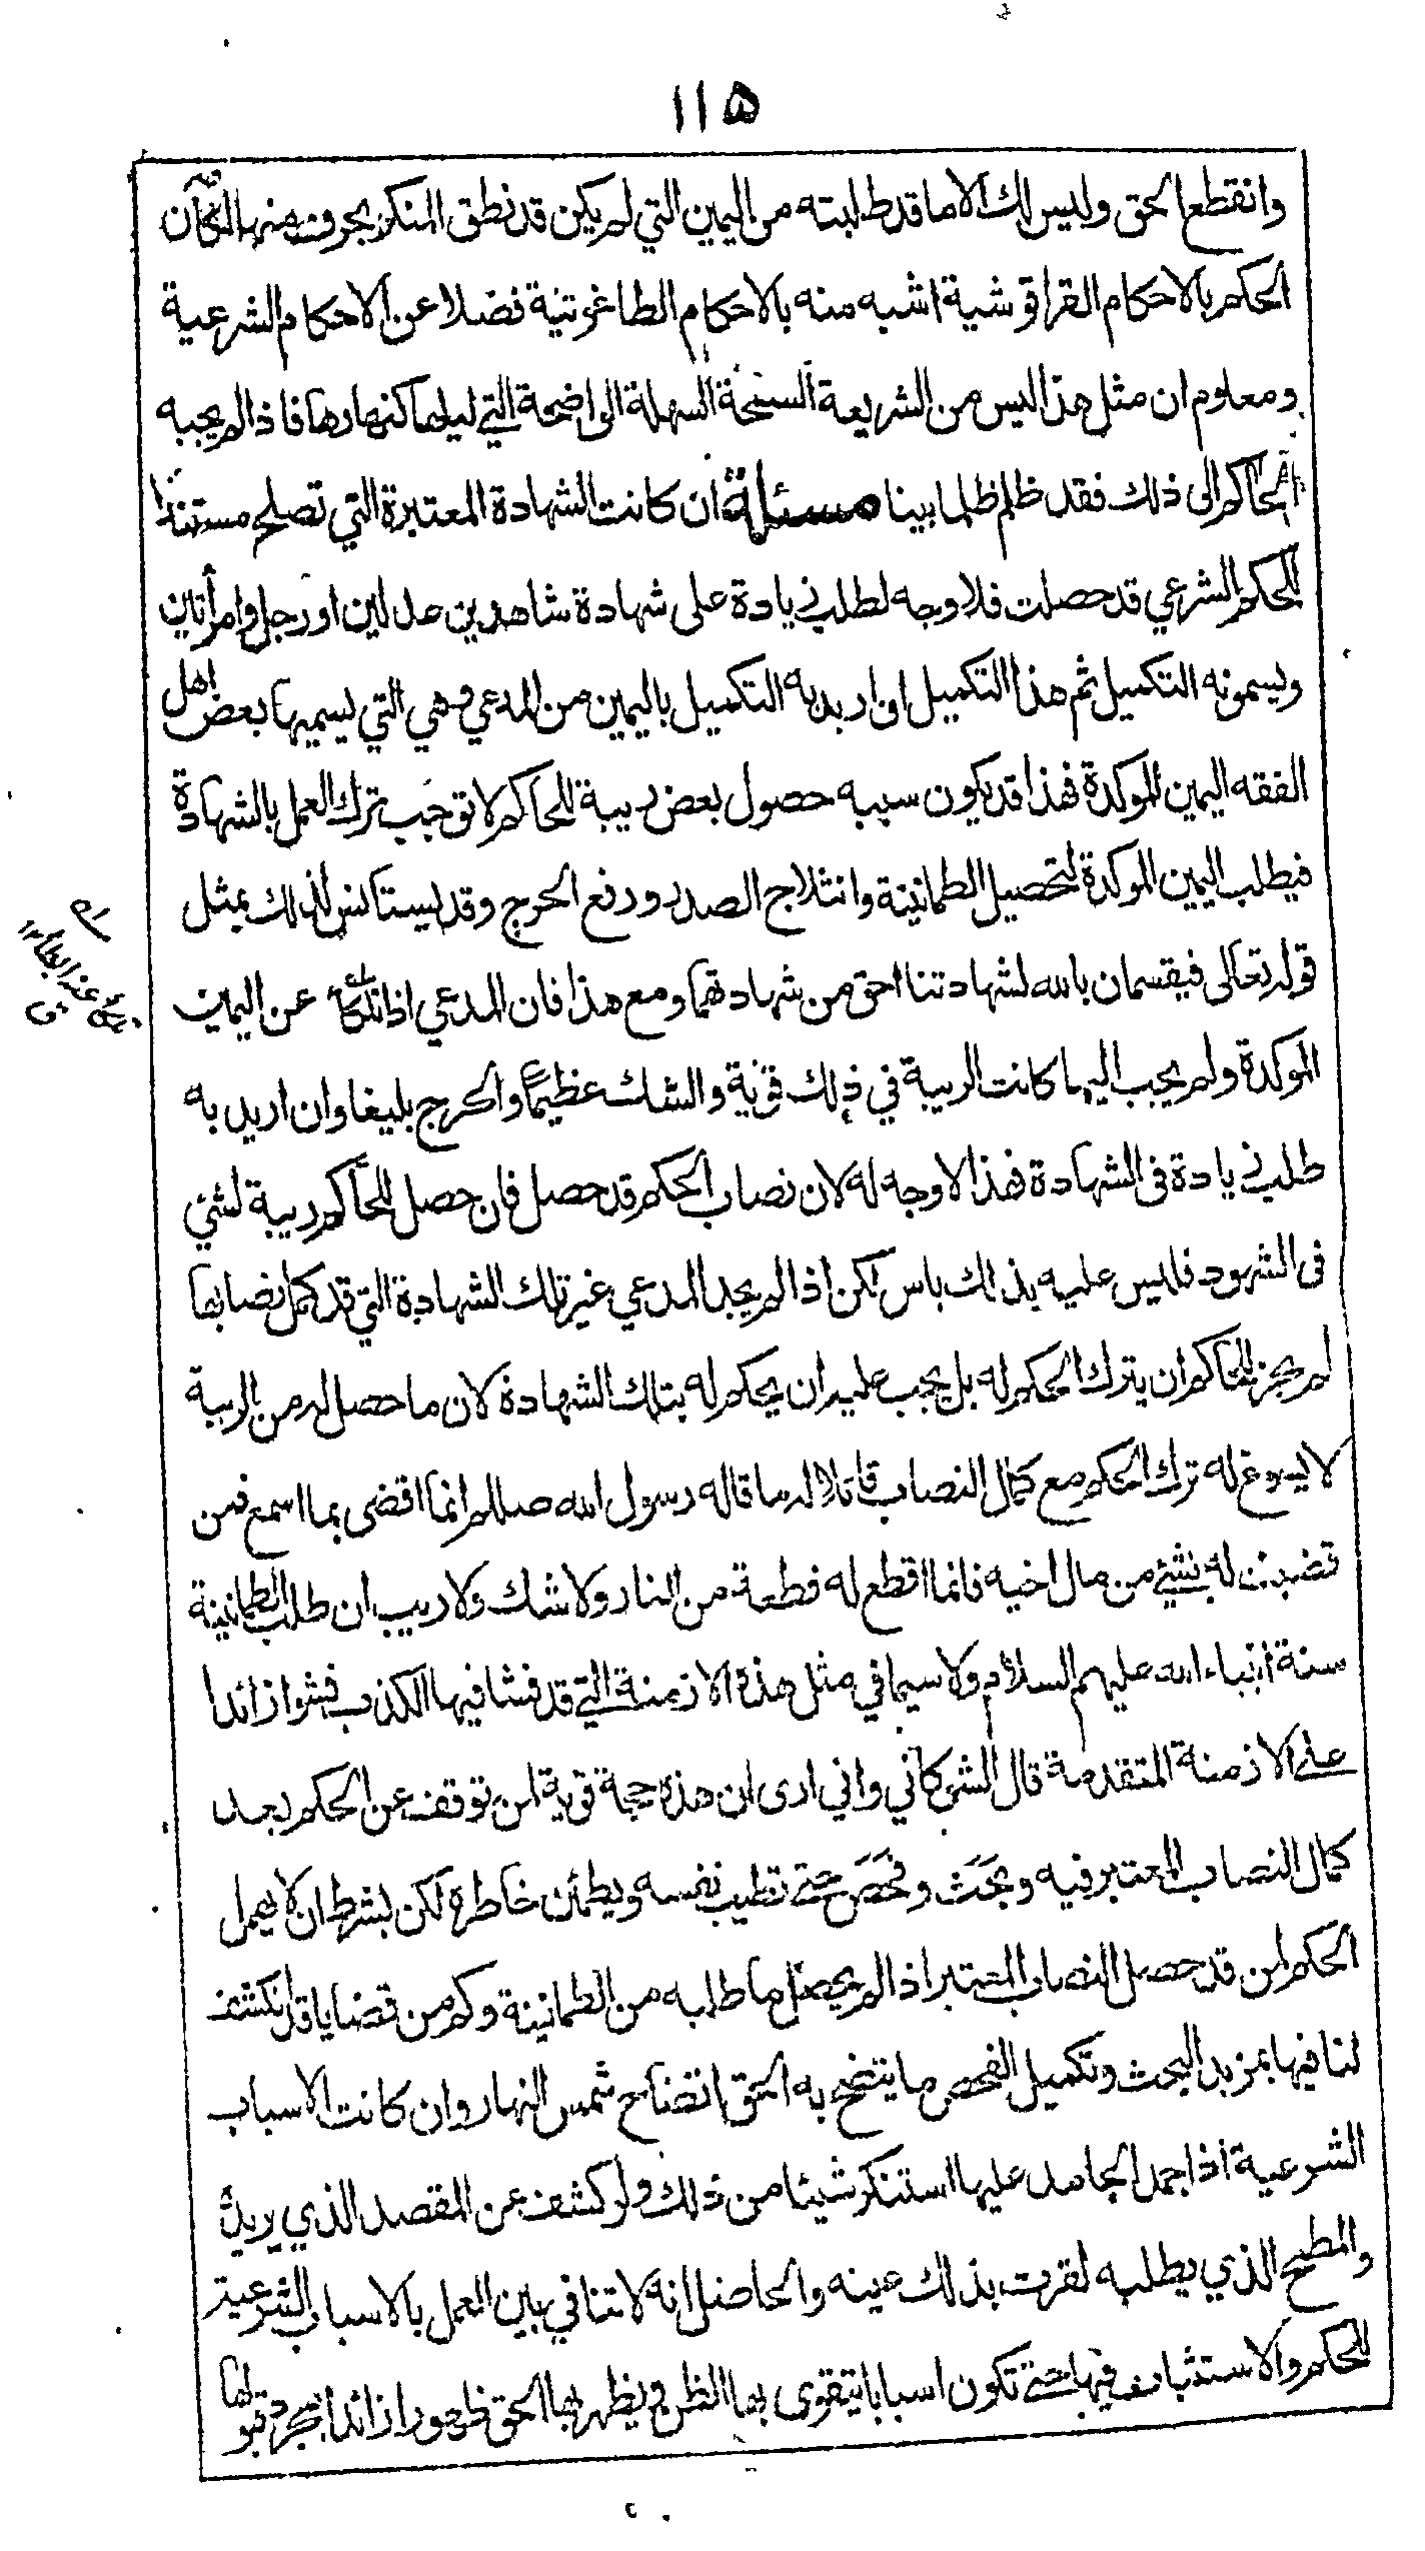 ١١۵
وانقطع الحق وليس لك الا ما قد طلبته من اليمين التي لم يكن قد نطق المنكر بحرف منها لكان
الحكم بالاحكام القراقوشية اشبه منه بالاحكام الطاغوتية فضلا عن الاحكام الشرعية
ومعلوم ان مثل هذا ليس من الشريعة السمحة السهلة الواضحة التي ليلها كنهارها فاذا لم يجبه
الحاكم الى ذلك فقد ظلم ظلما بينا مسئلة ان كانت الشهادة المعتبرة التي تصلح مستندا
للحكم الشرعي قد حصلت فلا وجه لطلب زيادة على شهادة شاهدين عدلين او رجل وامرأتين
ويسمونه التكميل ثم هذا التكميل ان اريد به التكميل باليمين من المدعي وهي التي يسميها بعض اهل
الفقه اليمين الموكدة فهذا قد يكون سببه حصول بعض ريبة للحاكم لا توجب ترك العمل بالشهادة
فيطلب اليمين الموكدة لتحصيل الطمانينة وانثلاج الصدر ودفع الحرج وقد يستانس لذلك بمثل
قوله تعالى فيقسمان بالله لشهادتنا احق من شهادتهما ومع هذا فان المدعي اذا تلكأ عن اليمين
الموكدة ولم يجب اليها كانت الريبة في ذلك قوية والشك عظيما والحرج بليغا وان اريد به
طلب زيادة فى الشهادة فهذا لا وجه له لان نصاب الحكم قد حصل فان حصل للحاكم ريبة لشئ
فى الشهود فليس عليه بذلك باس لكن اذا لم يجد المدعي غير تلك الشهادة التي قد كمل نصابها
لم يجز للحاكم ان يترك الحكم له بل يجب عليه ان يحكم له بتلك الشهادة لان ما حصل له من الريبة
لا يسوغ له ترك الحكم مع كمال النصاب قائلا له ما قاله رسول الله صللم انما اقضى بما اسمع فمن
قضيت له بشئ من مال اخيه فانما اقطع له قطعة من النار ولا شك ولا ريب ان طلب الطمانينة
سنة انبياء الله عليهم السلام ولا سيما في مثل هذه الازمنة التي قد فشا فيها الكذب فشوا زائدا
على الازمنة المتقدمة قال الشوكاني واني ارى ان هذه حجة قوية لمن توقف عن الحكم بعد
كمال النصاب المعتبر فيه وبحث وفحص حتى تطيب نفسه ويطمئن خاطره لكن بشرط ان لا يهمل
الحكم لمن قد حصل النصاب المعتبر اذا لم يحصل ما طلبه من الطمانينة وكم من قضايا قد انكشف
لنا فيها بمزيد البحث وتكميل الفحص ما يتضح به الحق اتضاح شمس النهار وان كانت الاسباب
الشرعية اذا جمد الجامد عليها استنكر شيئا من ذلك ولو كشف عن المقصد الذي يريد
والمطمح الذي يطلبه لقرت بذلك عينه والحاصل انه لا تنافي بين العمل بالاسباب الشرعية
للحكم والاستثبات فيها حتى تكون اسبابا يتقوى بها الظن ويظهر بها الحق ظهورا زائدا بمجرد قبولها